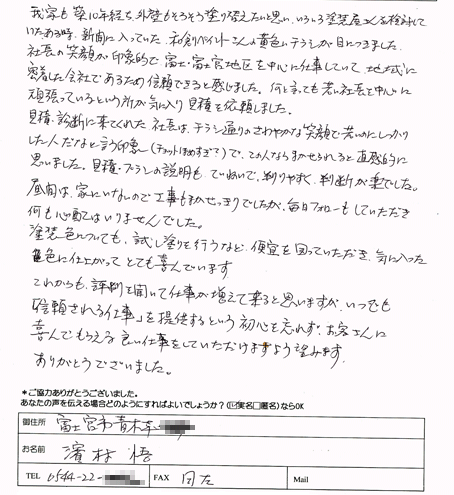 我家も築10年経ち、外壁もそろそろ塗り替えたいと思い、いろいろ塗装屋さんを検討して
いたある時、新聞に入っていた、和創ペイントさんの黄色いチラシが目につきました。
社長の笑顔が印象的で富士・富士宮地区を中心に仕事していて、地域に
密着した会社であるため信頼できると感じました。何と言っても若い社長を中心に
頑張っているという所が気に入り見積を依頼しました。
見積・診断に来てくれた社長は、チラシ通りのさわやかな笑顔で若いのにしっかり
した人だなと言う印象(チョットほめすぎ?)で、この人ならまかせられると直感的に
思いました。見積・プランの説明も、ていねいで、判りやすく、判断が楽でした。
昼間は、家にいないので工事もまかせっきりでしたが、毎日フォローもしていただき
何も心配はいりませんでした。
塗装色についても、試し塗りを行うなど、便宜を図っていただき、気に入った
色に仕上がってとても喜んでいます
これからも、評判を聞いて仕事が増えて来ると思いますが、いつでも
「信頼される仕事」を提供するという初心を忘れず、お客さんに
喜んでもらえる良い仕事をしていただけますよう望みます。
ありがとうございました。
*ご協力ありがとうございました。
あなたの声を伝える場合どのようにすればよいでしょうか?(☑実名□匿名)ならOK
御住所 富士宮市青木
お名前 濱村 悟
TEL 0544-22- FAX 同左 Mail